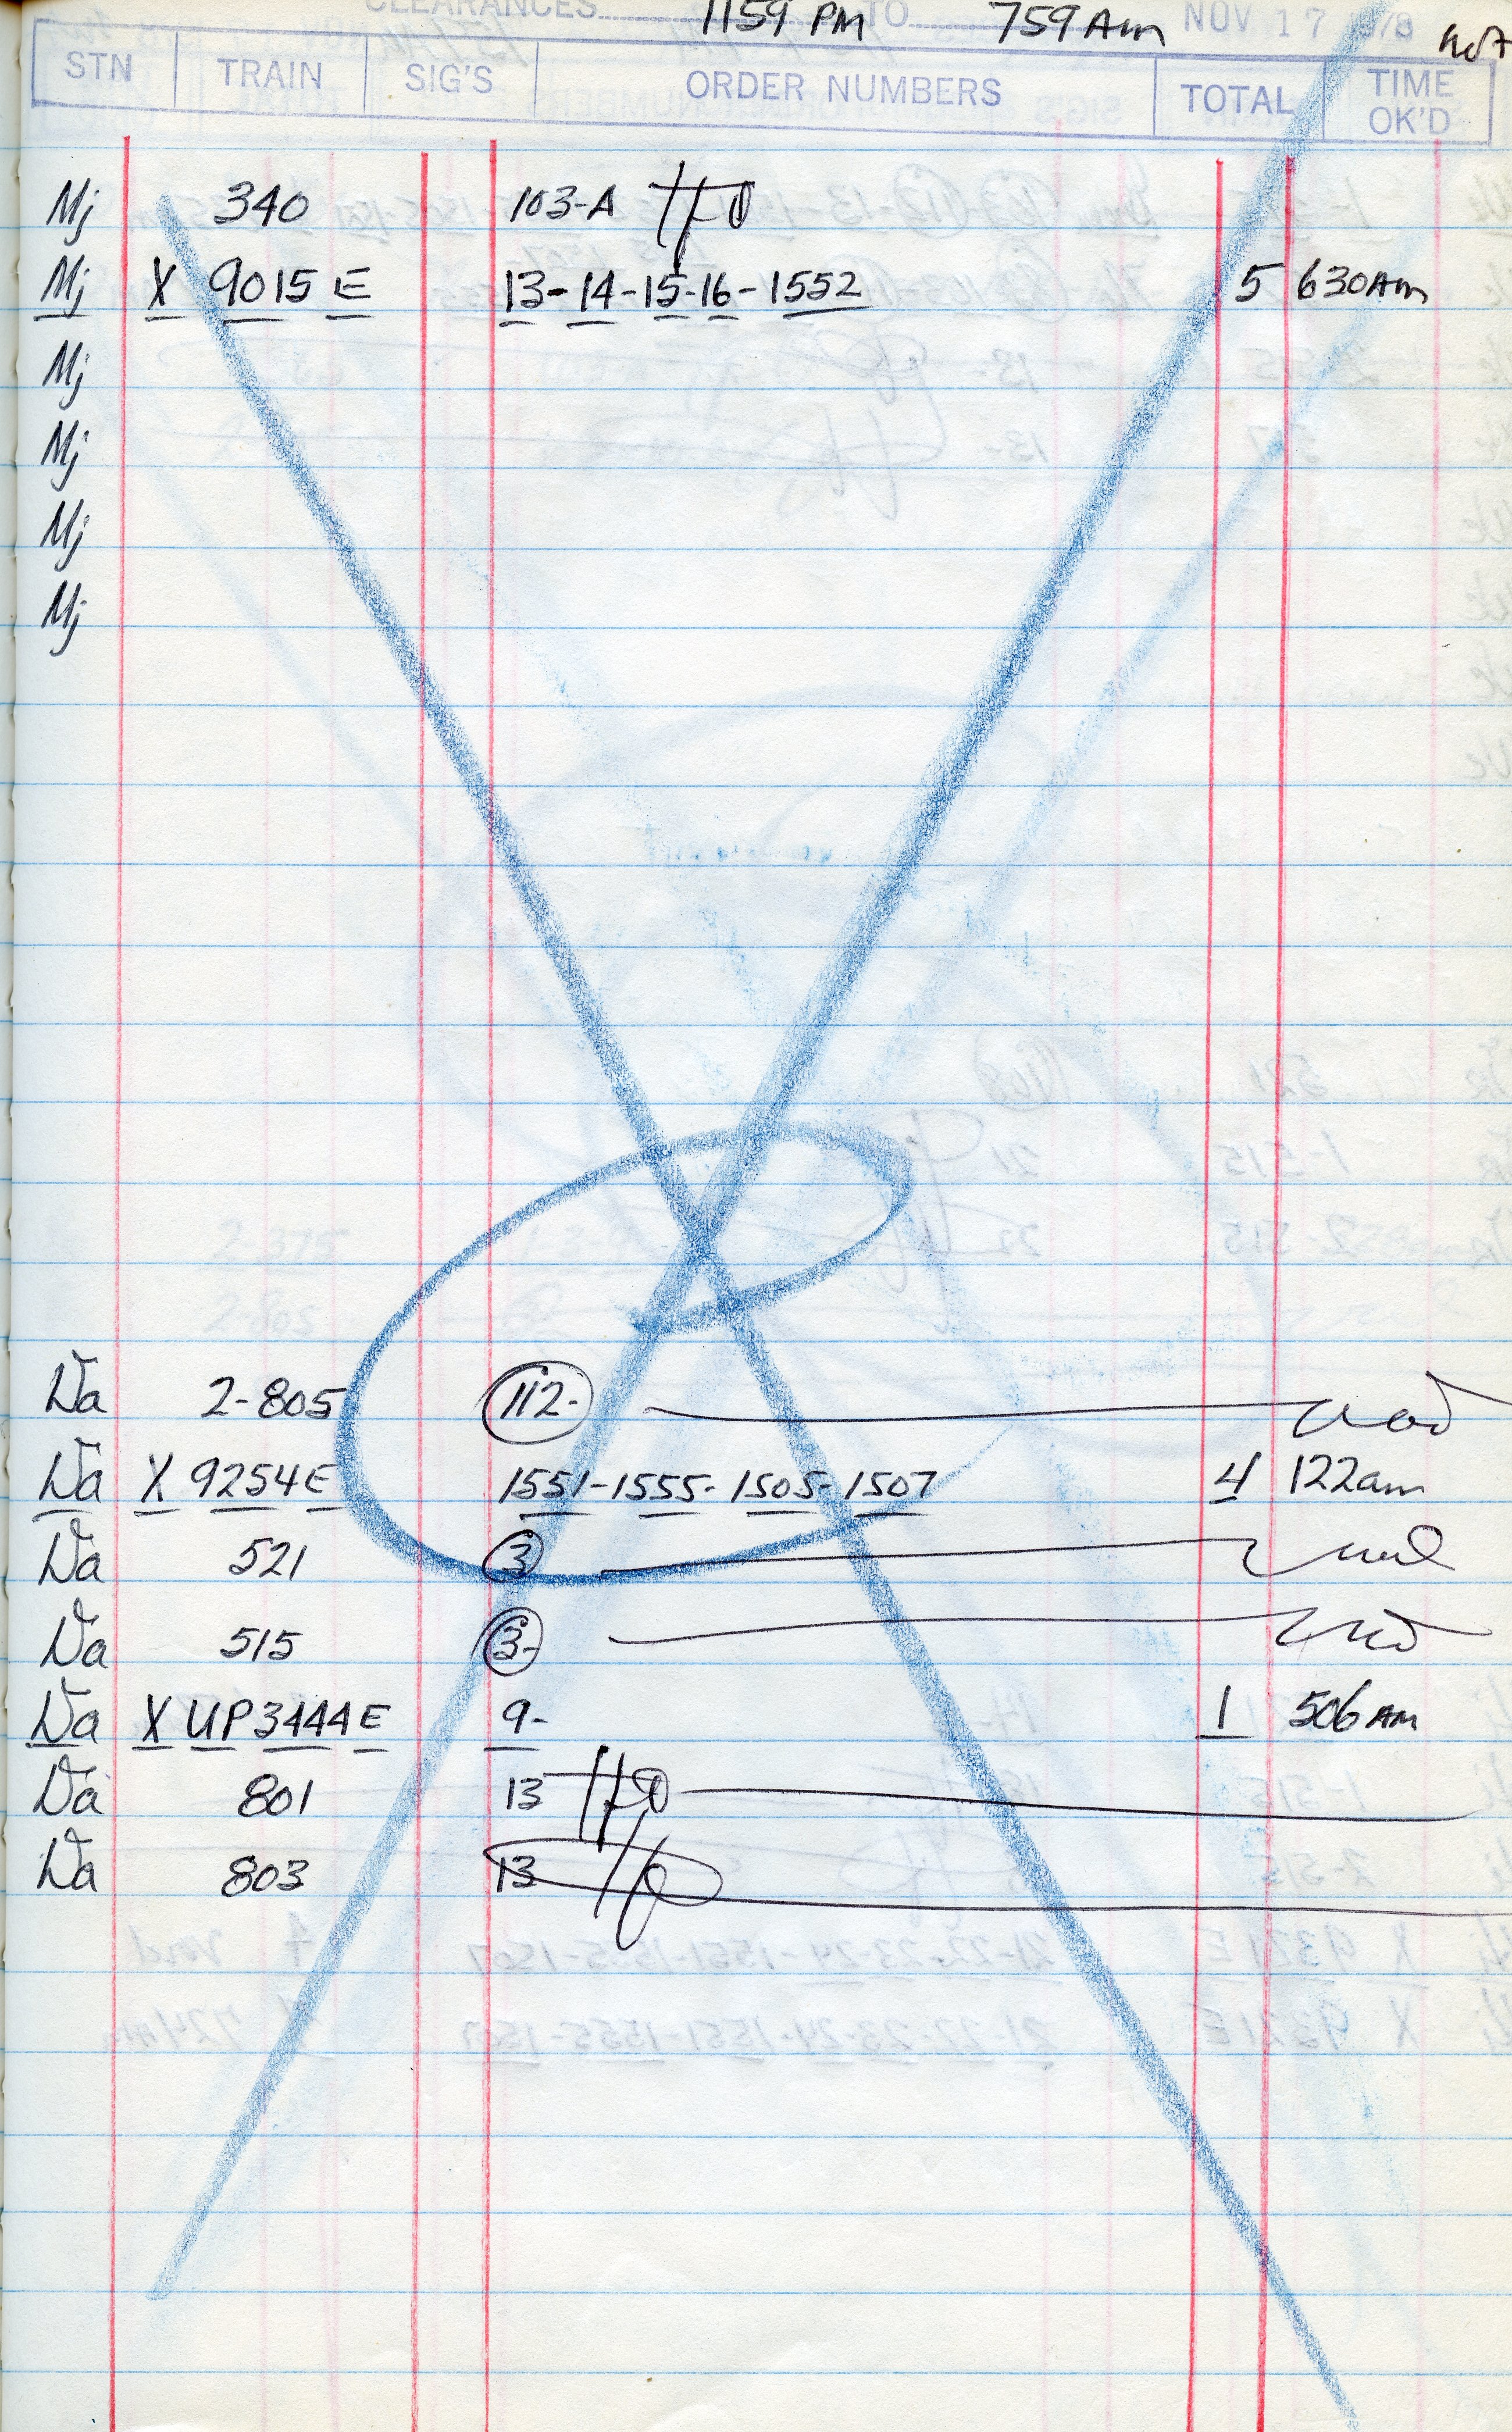 CLEARANCES 1159 PM TO 759 Am NOV 17
STN TRAIN SIG'S ORDER NUMBERS TOTAL TIME OK'D
Mj 340 103-A
Mj X 9015 E 13-14-15-16-1552 5 630Am
Mj
Mj
Mj
Mj
Wa 2-805 112-
Wa X 9254 E 1551-1555-1505-1507 4 122am
Wa 521 3
Wa 515 3-
Wa X UP 3444 E 9- 1 506 AM
Wa 801 13
Wa 803 13